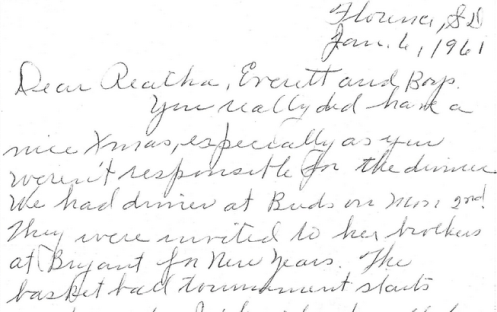 Florence, SD
Jan. 6, 1961
Dear Reatha, Everett and Boys.
You really did have a
nice Xmas, especially as you
weren't responsible for the dinner
We had dinner at Buds on Mon 2nd.
They were invited to her brothers
at Bryant for New Years. The
basket ball tournament starts